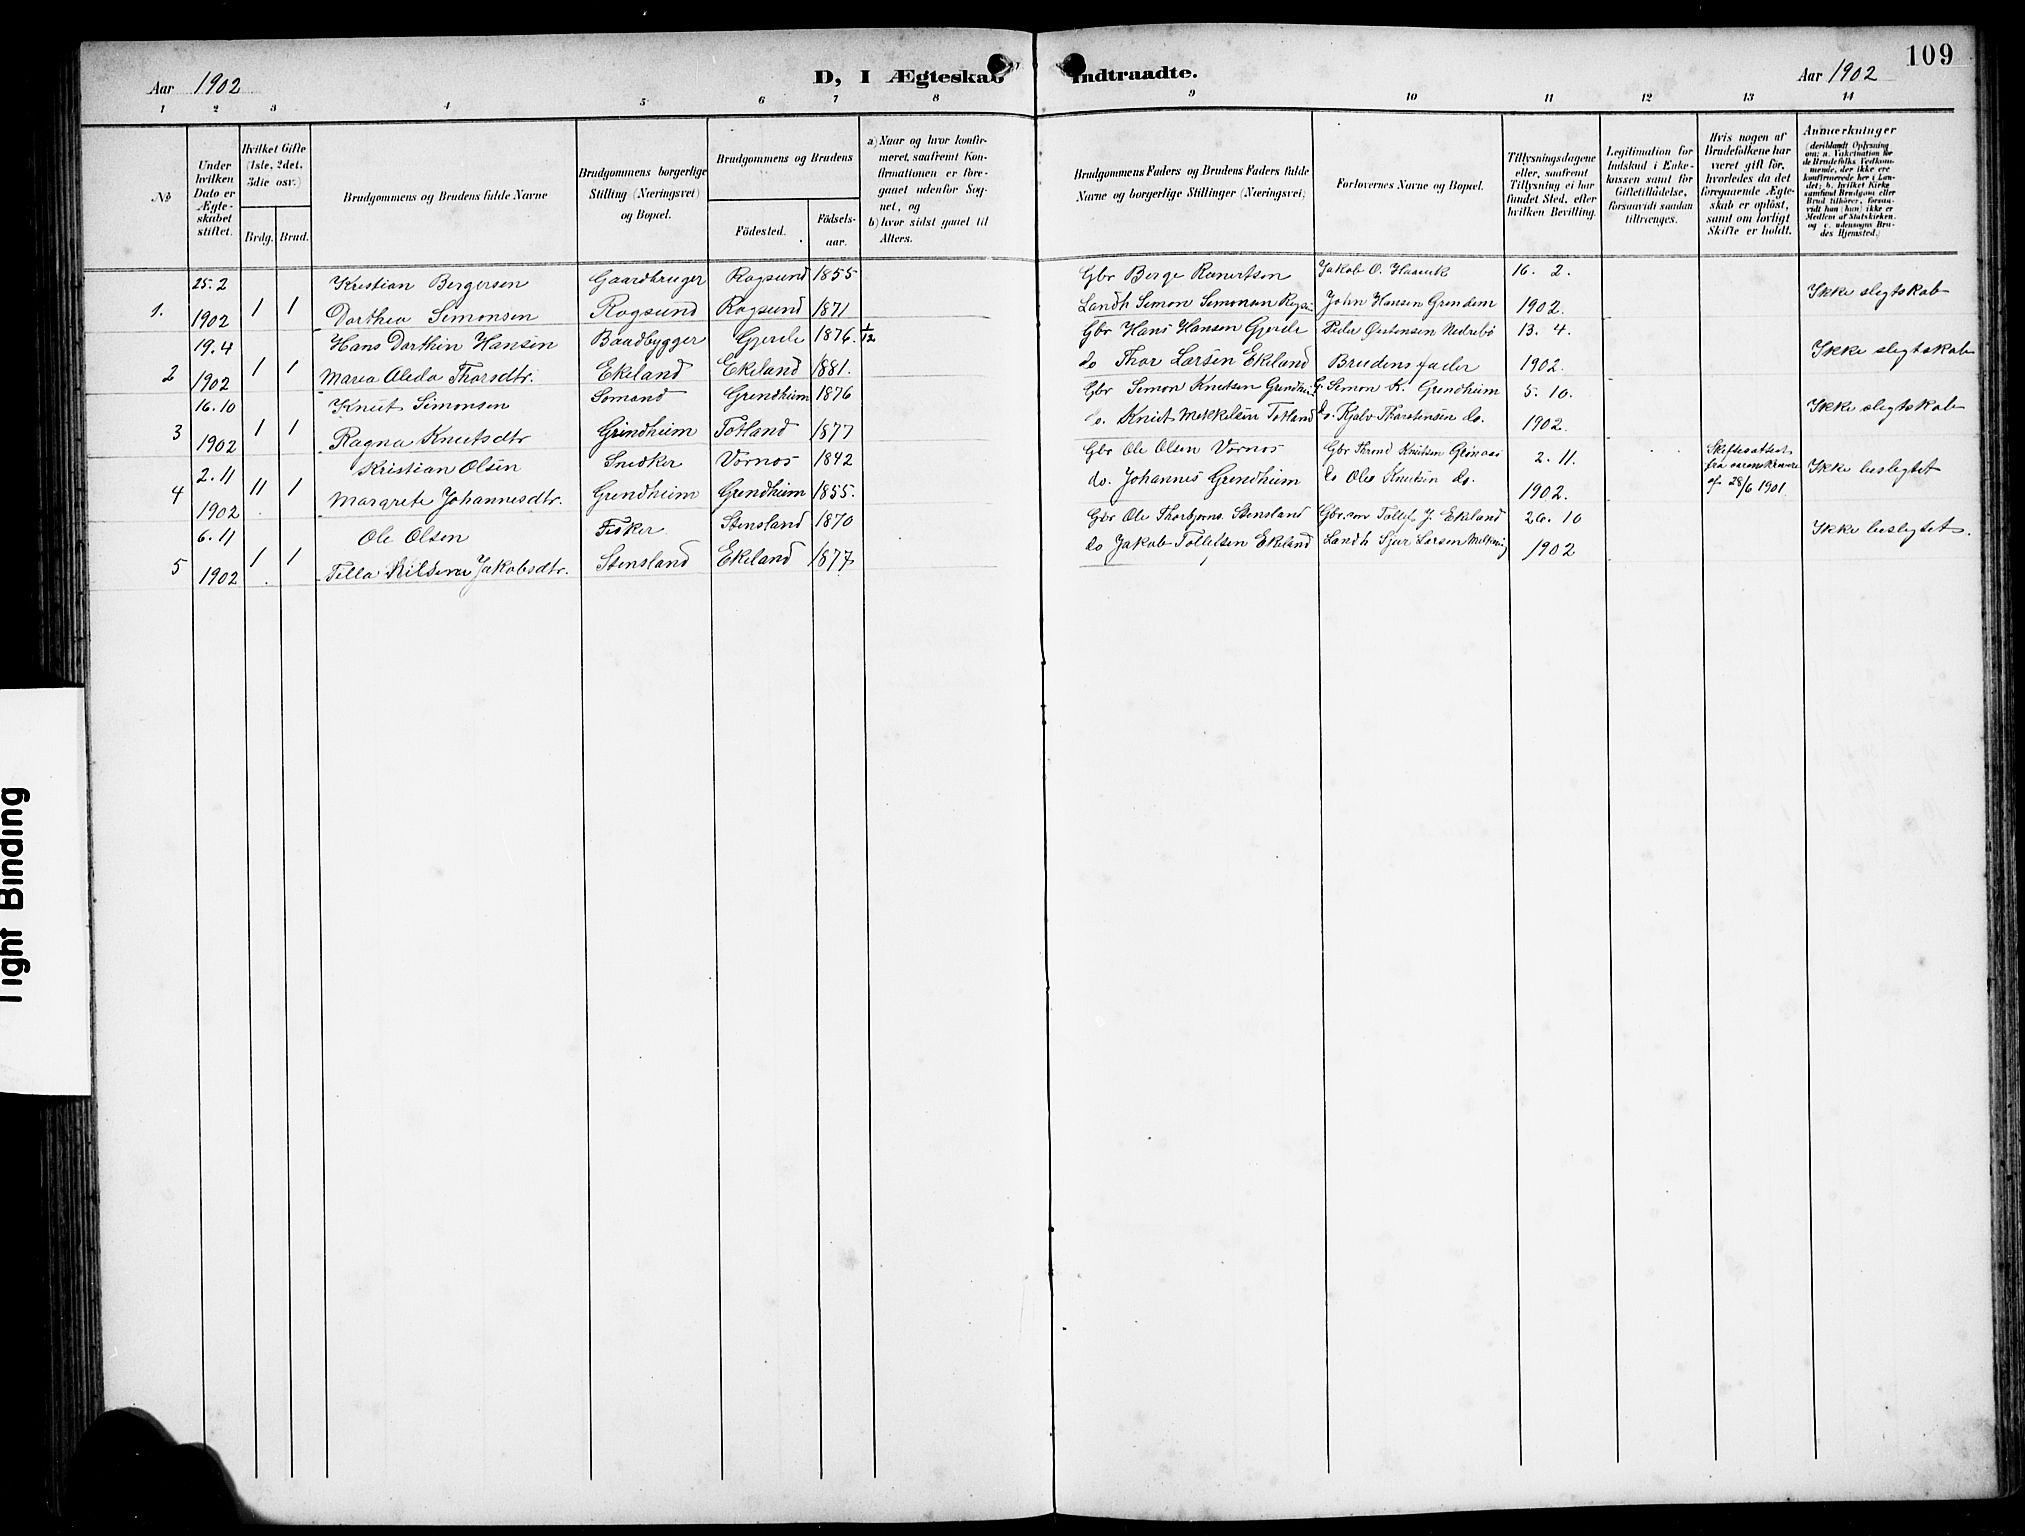 109
Aar 1902
D, I Ægteskab Indtraadte.
Aar 1902
1 2 3 4 5 6 7 8 9 10 11 12 13 14
№
Under hvilken Dato er Ægteskabet stiftet.
Hvilket Gifte (1ste, 2det, 3die osv.)
Brdg. Brud.
Brudgommens og Brudens fulde Navne
Brudgommens borgerlige Stilling (Næringsvei) og Bopæl.
Brudgommens og Brudens
Födested. Födselsaar.
a) Naar og hvor konfirmeret, saafremt Konfirmationen er foregaaet udenfor Sognet, og
b) hvor sidst gaaet til Alters.
Brudgommens Faders og Brudens Faders fulde Navne og borgerlige Stillinger (Næringsvei)
Forlovernes Navne og Bopæl.
Tillysningsdagene eller, saafremt Tillysning ei har fundet Sted, efter hvilken Bevilling.
Legitimation for Indskud i Enkekassen samt for Giftetilladelse, forsaavidt saadan tiltrænges.
Hvis nogen af Brudefolkene har været gift för, hvorledes da det foregaaende Ægteskab er oplöst, samt om lovligt Skifte er holdt.
Anmærkninger (deriblandt Oplysning om: a. Vakcination for de Brudefolks Vedkommende, der ikke ere konfirmerede her i Landet; b. hvilket Kirkesamfund Brudgom eller Brud tilhörer, forsaavidt han (hun) ikke er Medlem af Statskirken. og c. udensogns Brudes Hjemsted.)
25-2 Kristian Bergersen Gaardbruger Rogsund 1855 Gbr Berge Runertsen Jakob O. 16. 2.
1. 1902 1 1 Dorthea Simonsen Rogsund Rogsund 1871 Landh Simon Simonsen John Hansen Grendem 1902. Ikke slegtskab
19.4 Hans Dorthein Hansen Baadbygger Gjerde 1876. 1/12 Gbr Hans Hansen Gjerde Peder Øistensen Nedrebö 13. 4.
2 1902 1 1 Maria Aleda Thorsdtr. Ekeland Ekeland 1881. do Thor Larsen Ekeland Brudens fader 1902. Ikke slegtskab
16.10 Knut Simonsen Sömand Grendheim 1876 Gbr Simon Knutsen Grendheim G. Simon K. Grendheim 5. 10.
3 1902 1 1 Ragna Knutsdtr Grindheim Totland 1877 do. Knut Mekkelsen Totland do. Thorstensen do. 1902. Ikke slegtskab
2.11 Kristian Olsen Snedker Vornos 1842 Gbr Ole Olsen Vornos Gbr Knutsen 2. 11. Skifteattest fra
4 1902 11 1 Margrete Johannesdtr. Grendheim Grendheim 1855. do. Johannes Grendheim do Ole Knutsen do. 1902. af 28/6 1901 Ikke beslegtet
6.11 Ole Olsen Fisker Stensland 1870 Gbr Ole Thorbjorns. Stensland Gbr. J. Ekeland 26. 10
5 1902 1 1 Jakobsdtr. Stensland Ekeland 1877 do Jakob Tollefsen Ekeland Landh Sjur Larsen 1902 Ikke beslegtet.
Tight Binding